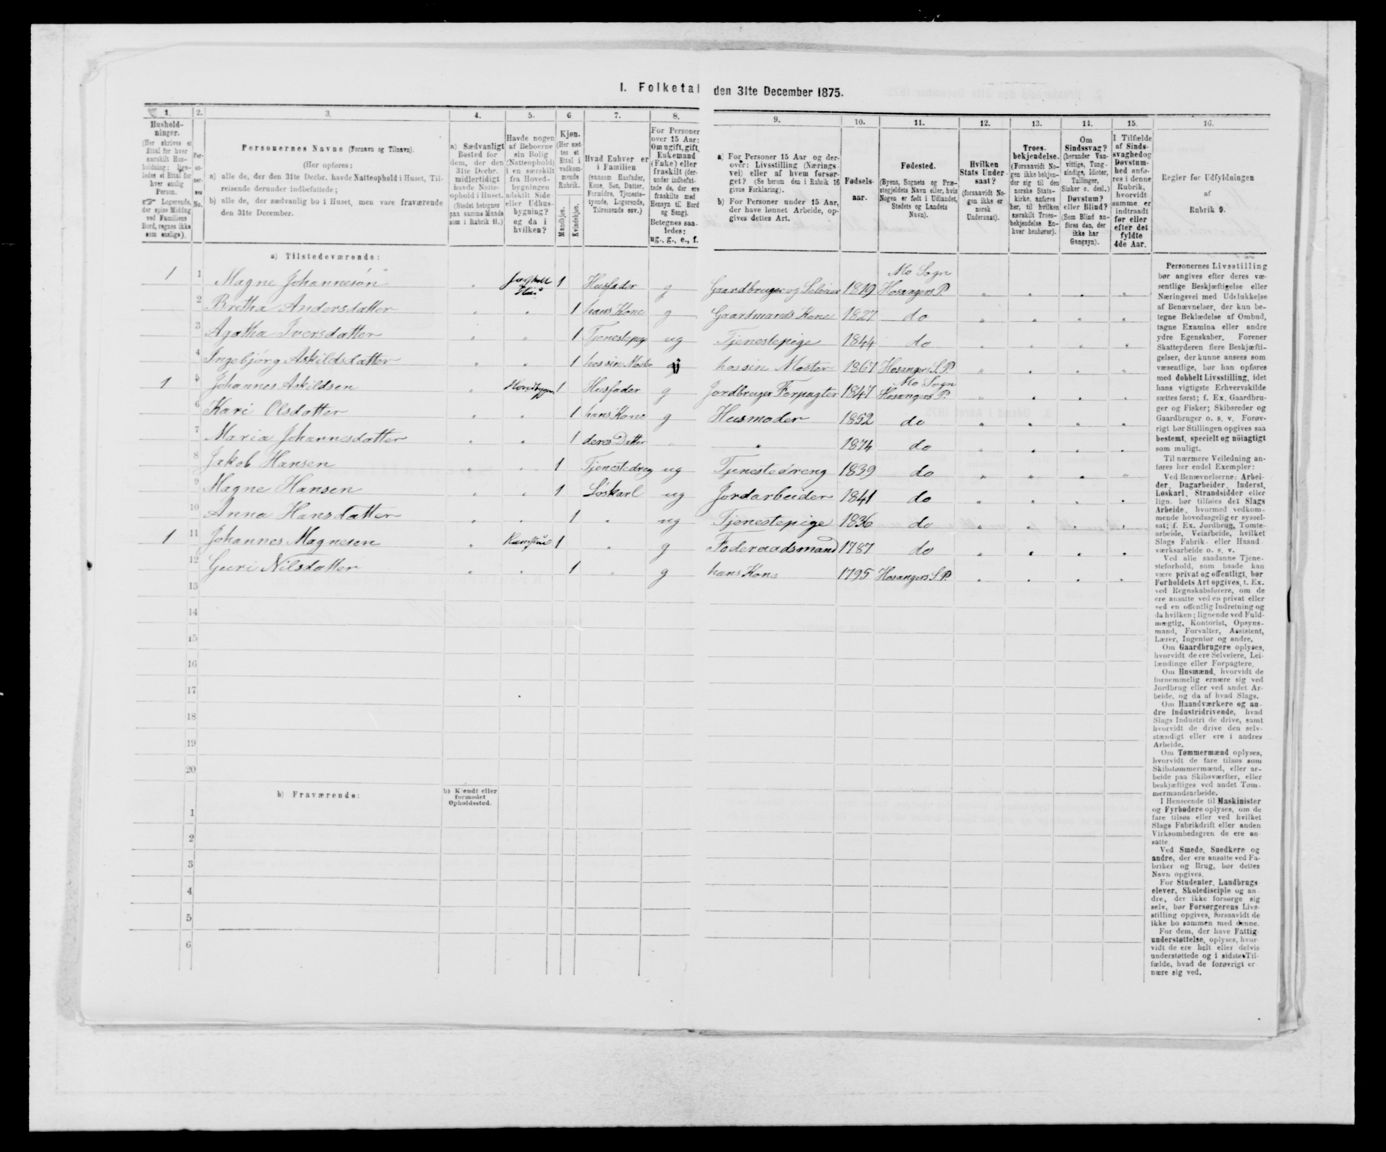 I. Folketal den 31te December 1875.
1. 2. 3. 4. 5. 6 7. 8. 9. 10. 11. 12. 13. 11. 15. 16.
Personernes Navne (Fornavn og Tilnavn).
(Her opføres:
a) alle de, der den 31te Decbr. havde Natteophold i Huset, Tilreisende derunder indbefattede;
b) alle de, der sædvanlig bo i Huset, men vare fraværende den 31te December.
a) Sædvanligt Bosted for dem, der den 31te Decbr. midlertidigt havde Natteophold i Huset.
Kjøn.
Mandkjøn. Kvindekjøn.
a) For Personer 15 Aar og derover: Livsstilling (Næringsvei) eller af hvem forsørget? (Se herom den i Rubrik 16 givne Forklaring).
b) For Personer under 15 Aar, der have lønnet Arbeide, opgives dettes Art.
Fødselsaar.
Fødested.
(Byens, Sognets og Præstegjeldets Navn eller, hvis Nogen er født i Udlandet, Stedets og Landets Navn).
Hvilken Stats Undersaat?
(forsaavidt Nogen ikke er norsk Undersaat).
Troesbekjendelse.
Om Sindssvag?
Døvstum? eller Blind?
Regler for Udfyldningen af Rubrik 9.
a) Tilstedeværende:
1 1 Magne Johannesøn 1 Husfader g Gaardbruger og Selveier 1819 Mo Sogn Hosangers P.
2 Bretha Andersdatter 1 hans Kone g Gaardmands Kone 1827 do
3 Agatha Iversdatter 1 Tjenestepige ug Tjenestepige 1844 do
4 Ingebjørg Askildsdatter 1 hos sin Moster hos sin Moster 1867 Hosangers S. P.
1 5 Johannes Askildsen 1 Husfader g Jordbruger Forpagter 1847 Mo Sogn Hosangers P.
6 Kari Olsdatter 1 hans Kone g Husmoder 1852 do
7 Maria Johannesdatter 1 deres Datter 1874 do
8 Jakob Hansen 1 Tjenestedreng ug Tjenestedreng 1839 do
9 Magne Hansen 1 Løskarl ug Jordarbeider 1841 do
10 Anna Hansdatter 1 ug Tjenestepige 1836 do
1 11 Johannes Magnesen 1 g Foderaadsmand 1787 do
12 Guri Nilsdatter 1 g hans Kone 1795 Hosangers S. P.
13
14
15
16
17
18
19
20
b) Fraværende: b) Kjendt eller formodet Opholdssted.
1
2
3
4
5
6
Personernes Livsstilling
bør angives efter deres væsentlige Beskjæftigelse eller
Næringsvei med Udelukkelse
af Benævnelser, der kun betegne Beklædelse af Ombud,
tagne Examina eller andre
ydre Egenskaber. Forener
Skatteyderen flere Beskjæftigelser, der kunne ansees som
væsentlige, bør han opføres
med dobbelt Livsstilling, idet
hans vigtigste Erhvervskilde
sættes først; f. Ex. Gaardbruger og Fisker; Skibsreder og
Gaardbruger o. s. v. Forøvrigt bør Stillingen opgives saa
bestemt, specielt og nöiagtigt
som muligt.
Til nærmere Veiledning anføres her endel Exempler:
Ved Benævnelserne: Arbeider, Dagarbeider, Inderst,
Løskarl, Strandsidder eller
lign. bør tilføies det Slags
Arbeide, hvormed vedkommende hovedsagelig er sysselsat; f. Ex. Jordbrug, Tomtearbeide, Veiarbeide, hvilket
Slags Fabrik- eller Haandværksarbeide o. s. v.
Ved alle saadanne Tjenesteforhold, som baade kan
være privat og offentligt, bør
Forholdets Art opgives, f. Ex.
ved Regnskabsførere, om de
ere ansatte ved en privat eller
ved en offentlig Indretning og
da hvilken; lignende ved Fuldmægtig, Kontorist, Opsynsmand, Forvalter, Assistent,
Lærer, Ingeniør og andre.
Om Gaardbrugere oplyses,
hvorvidt de ere Selveiere, Leilændinge eller Forpagtere.
Om Husmænd, hvorvidt de
fornemmelig ernære sig ved
Jordbrug eller ved andet Arbeide, og da af hvad Slags.
Om Haandværkere og andre Industridrivende, hvad
Slags Industri de drive, samt
hvorvidt de drive den selvstændigt eller ere i andres
Arbeide.
Om Tømmermænd oplyses,
hvorvidt de fare tilsøs som
Skibstømmermænd, eller arbeide paa Skibsværfter, eller
beskjæftiges ved andet Tømmermandsarbeide.
I Henseende til Maskinister
og Fyrbødere oplyses, om de
fare tilsøs eller ved hvilket
Slags Fabrikdrift eller anden
Virksomhedsgren de ere ansatte.
Ved Smede, Snedkere og
andre, der ere ansatte ved Fabriker og Brug, bør dettes
Navn opgives.
For Studenter, Landbrugselever, Skoledisciple og andre, der ikke forsørge sig
selv, bør Forsørgerens Livsstilling opgives, forsaavidt de
ikke bo sammen med denne.
For dem, der have Fattigunderstøttelse, oplyses, hvorvidt de ere helt eller delvis
understøttede og i sidste Tilfælde, hvad de forøvrigt ernære sig ved.